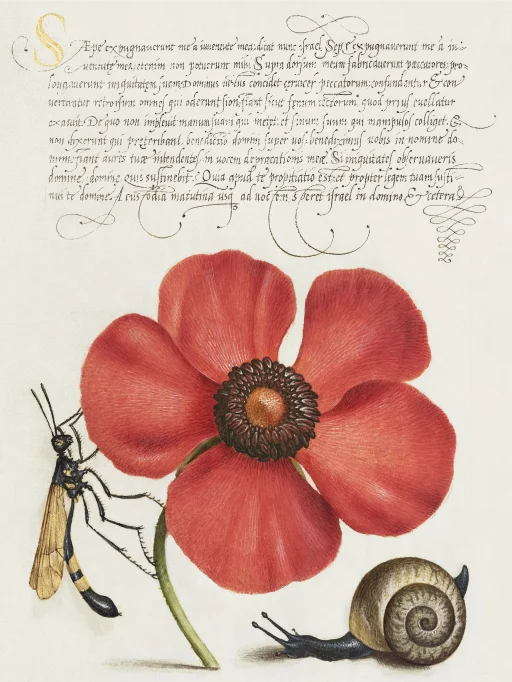 Sæpe expugnauerunt me a iuuentute mea: dicat nunc Israel. Sepe expugnauerunt me a iu-
uentute mea: etenim non potuerunt mihi. Supra dorsum meum fabricauerunt peccatores: pro-
longauerunt iniquitatem suam. Dominus iustus concidet ceruices peccatorum: confundantur & con
vertantur retrorsum omnes qui oderunt Sion. Fiant sicut fœnum tectorum, quod prius euellatur
exaruit. De quo non impleuit manum suam qui metet: et sinum suum qui manipulos colliget. Et
non dixerunt qui preteribant, benedictio domini super vos: benediximus vobis in nomine do-
mini. fiant aures tuæ intendentes, in vocem deprecationis meæ. Si iniquitates obseruaueris
domine, domine quis sustinebit. Quia apud te propitiatio est: et propter legem tuam susti-
nui te domine. A custodia matutina usq ad noctem, speret Israel in domino. & cetera.